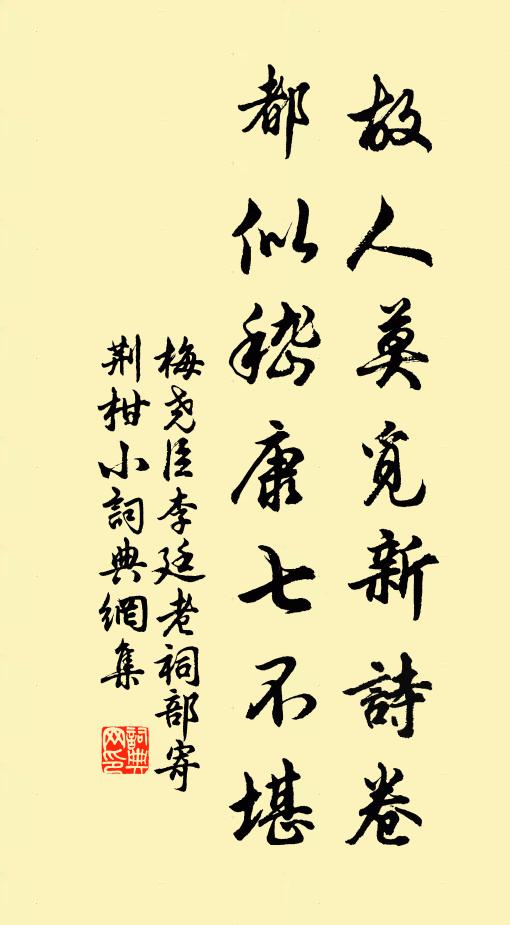 故人莫觅新詩卷
都似嵇康七不堪
梅尧臣李廷老祠部寄
荆柑小詞典網集
詞典网印